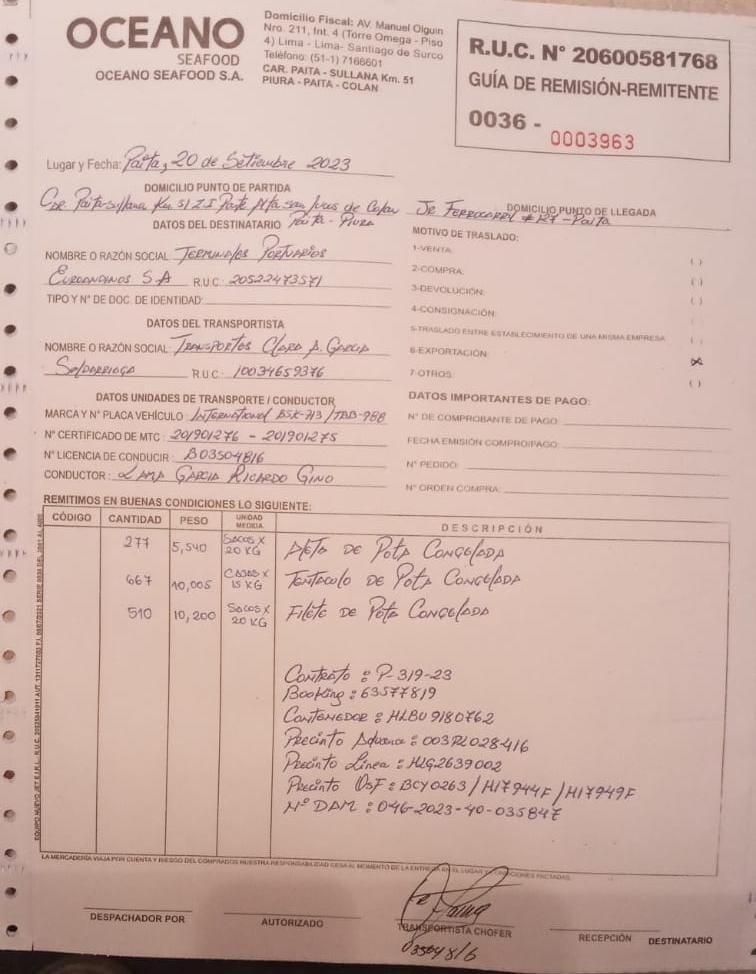 OCEANO
SEAFOOD
OCEANO SEAFOOD S.A.
Domicilio Fiscal: AV. Manuel Olguin
Nro. 211, Int. 4 (Torre Omega - Piso
4) Lima - Lima- Santiago de Surco
Teléfono: (51-1) 7166601
CAR. PAITA - SULLANA Km. 51
PIURA - PAITA - COLAN
R.U.C. N° 20600581768
GUÍA DE REMISIÓN-REMITENTE
0036 - 0003963
Lugar y Fecha: Paita, 20 de Setiembre 2023
DOMICILIO PUNTO DE PARTIDA
Car Paita-Sullana Km 51 Z.I Parte Alta San Lucas de Colan
Paita - Piura
DOMICILIO PUNTO DE LLEGADA
Jr Ferrocarril # 127-Paita
DATOS DEL DESTINATARIO
NOMBRE O RAZÓN SOCIAL Terminales Portuarios
Euroandinos SA R.U.C. 20522473571
TIPO Y N° DE DOC. DE IDENTIDAD:
MOTIVO DE TRASLADO:
1-VENTA: ( )
2-COMPRA: ( )
3-DEVOLUCIÓN: ( )
4-CONSIGNACIÓN: ( )
5-TRASLADO ENTRE ESTABLECIMIENTO DE UNA MISMA EMPRESA ( )
6-EXPORTACIÓN: (X)
7-OTROS: ( )
DATOS DEL TRANSPORTISTA
NOMBRE O RAZÓN SOCIAL: Transportes Clara A. Garcia
Saldarriaga R.U.C: 10034659376
DATOS UNIDADES DE TRANSPORTE / CONDUCTOR
MARCA Y N° PLACA VEHÍCULO: International BSK-713/TBB-988
N° CERTIFICADO DE MTC: 201901276 - 201901275
N° LICENCIA DE CONDUCIR: B03504816
CONDUCTOR: Lama Garcia Ricardo Gino
DATOS IMPORTANTES DE PAGO:
N° DE COMPROBANTE DE PAGO:
FECHA EMISIÓN COMPRO/PAGO:
N° PEDIDO:
N° ORDEN COMPRA:
REMITIMOS EN BUENAS CONDICIONES LO SIGUIENTE:
CÓDIGO CANTIDAD PESO UNIDAD MEDIDA DESCRIPCIÓN
277 5,540 Sacos x 20 KG Aleta de Pota Congelada
667 10,005 Cajas x 15 KG Tentaculo de Pota Congelada
510 10,200 Sacos x 20 KG Filete de Pota Congelada
Contrato: P-319-23
Booking: 63577819
Contenedor: HLBU 9180762
Precinto Aduana: 003PL028416
Precinto Linea: HLG2639002
Precinto OSF: BCY0263/H17944F/H17949F
N° DAM: 046-2023-40-035847
LA MERCADERÍA VIAJA POR CUENTA Y RIESGO DEL COMPRADOR NUESTRA RESPONSABILIDAD CESA AL MOMENTO DE LA ENTREGA EN EL LUGAR Y CONDICIONES PACTADAS.
DESPACHADOR POR
AUTORIZADO
TRANSPORTISTA CHOFER
03504816
RECEPCIÓN DESTINATARIO